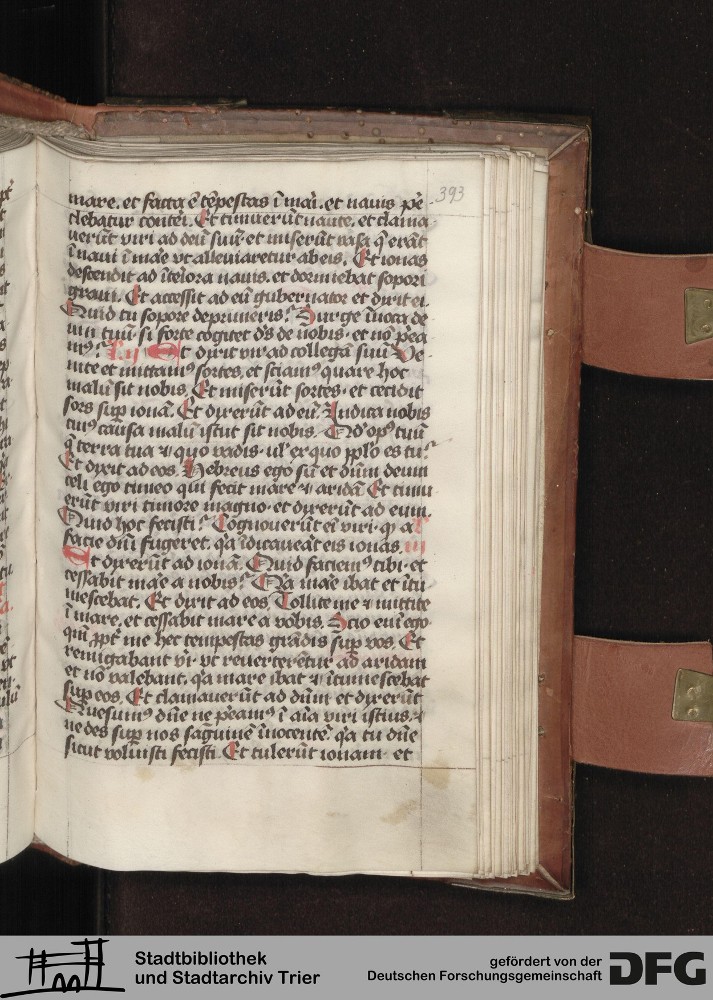 393
mare. et facta ē tēpestas ī mari. et nauis pe
clebatur conteri. Et timuerūt naute. et clama
uerūt viri ad deū suū. et miserūt vasa q̄ erāt
ī naui ī mare vt alleuiaretur ab eis. Et ionas
descendit ad īteriora nauis. et dormiebat sopori
graui. Et accessit ad eū gubernator et dixit ei.
Quid tu sopore deprimeris? Surge īuoca de
um tuū. si forte cogitet ds de nobis. et nō pea
mꝰ? Et dixit vir ad collegā suū Ve
nite et mittamꝰ sortes. et sciamꝰ quare hoc
malū sit nobis. Et miserūt sortes. et cecidit
sors sup ionā. Et dixerūt ad eū. Indica nobis
cuiꝰ causa malū istut sit nobis. Qd opꝰ tuū
q̄ terra tua ⁊ quo vadis. ul' ex quo pplo es tu?
Et dixit ad eos. Hebreus ego sū et dūm deum
celi ego timeo qui fecit mare ⁊ aridā Et timu
erūt viri timore magno. et dixerūt ad eum.
Quid hoc fecisti? Cognouerūt ei viri. q a
facie dnī fugeret. qa īdicaueāt eis ionas. iii
Et dixerūt ad ionā. Quid faciemꝰ tibi. et
cessabit mare a nobis? Qa mare ibat et ītu
mescebat. Et dixit ad eos. Tollite me ⁊ mittite
ī mare. et cessabit mare a vobis. Scio eni ego
qm ppt me hec tempestas grādis sup vos. Et
remigabant viri vt reuerterētur ad aridam
et nō valebant. qa mare ibat ⁊ ītumescebat
sup eos. Et clamauerūt ad dūm et dixerūt
Quesumꝰ dne ne peamꝰ ī aīa viri istius. ⁊
ne des sup nos sāguinē īnocentē qa tu dne
sicut voluisti fecisti. Et tulerūt ionam. et
Stadtbibliothek
und Stadtarchiv Trier
gefördert von der
Deutschen Forschungsgemeinschaft
DFG